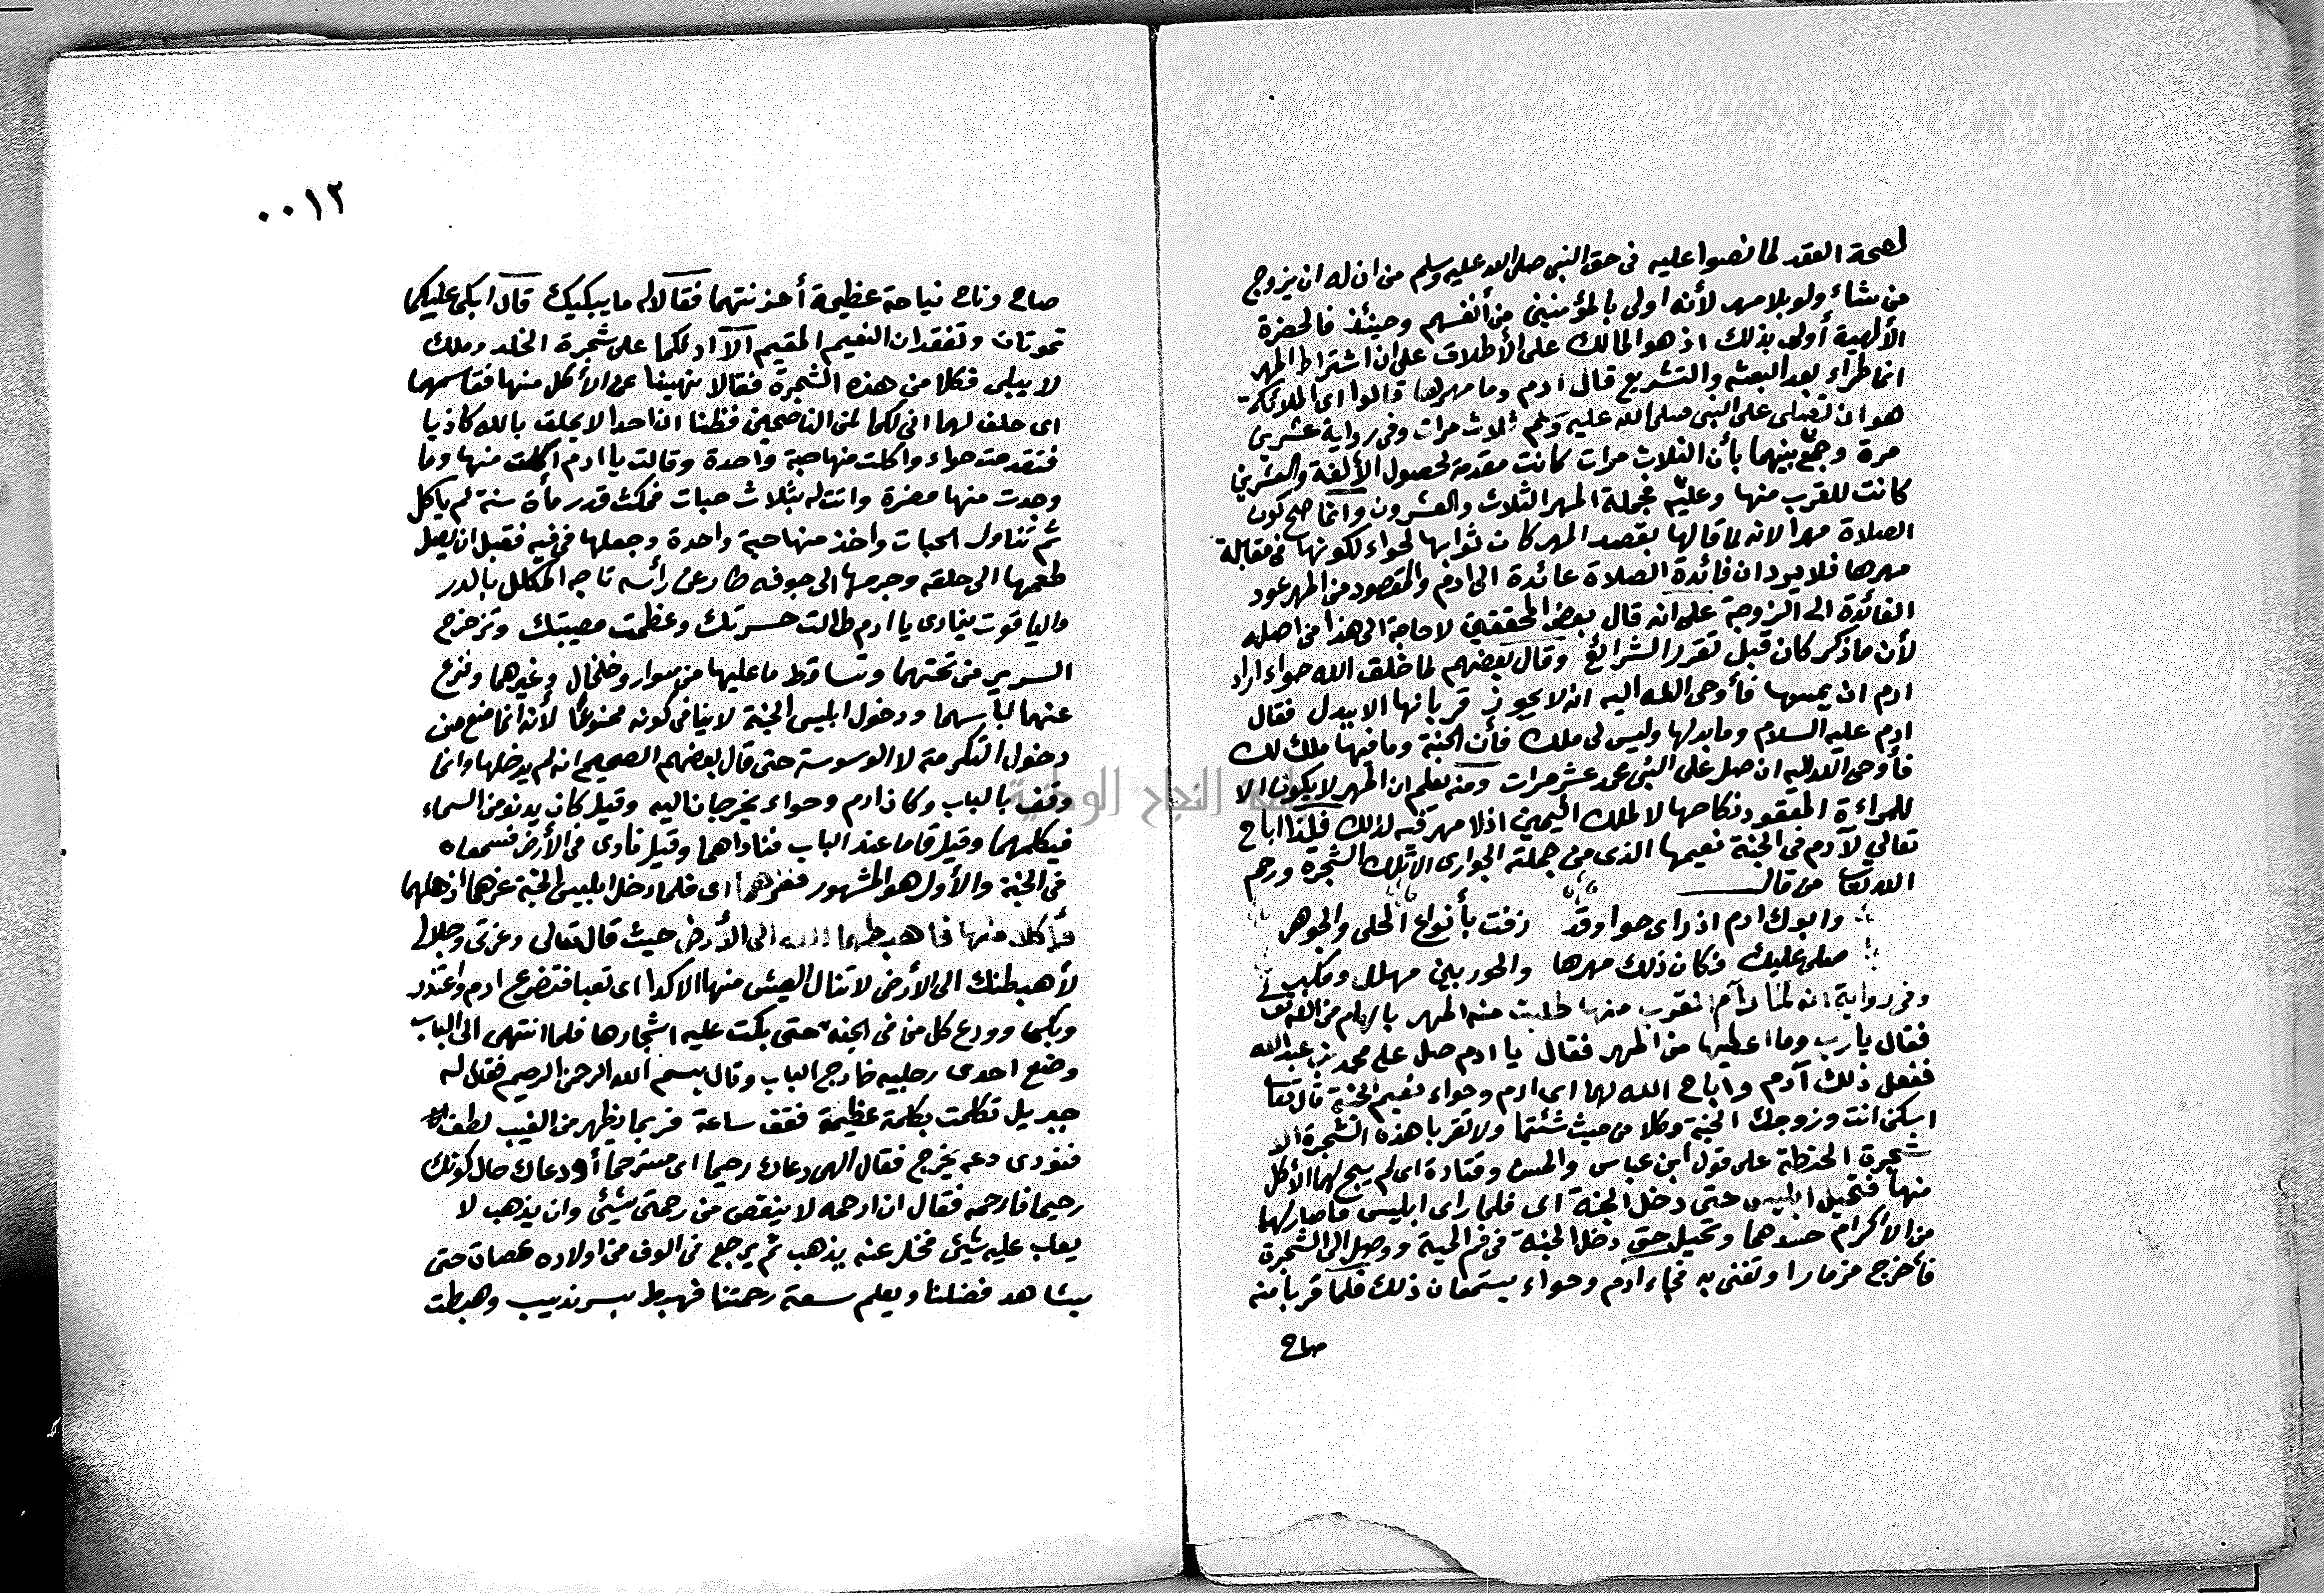 لصحة العقد لما نصوا عليه فى حق النبى صلى الله عليه وسلم من ان له ان يزوج
من شاء ولو بلا مهر لأنه اولى بالمؤمنين من أنفسهم وحينئذ فالحضرة
الألهية أولى بذلك اذ هو المالك على الأطلاق على ان اشتراط المهر
انما طراء بعد البعثه والتشريع قال ادم وما مهرها قالوا اى الملائكة
هو ان تصلى على النبى صلى الله عليه وسلم ثلاث مرات وفى رواية عشرين
مرة وجمع بينهما بأن الثلاث مرات كانت مقدمة لحصول الألفة والعشرين
كانت للقرب منها وعليه فجملة المهر الثلاث والعشرون وانما صح كون
الصلاة مهرا لانه لما قالها بقصد المهر كان ثوابها لحواء لكونها فى مقابلة
مهرها فلا يرد ان فائدة الصلاة عائدة الى ادم والمقصود من المهر عود
الفائدة الى الزوجة على انه قال بعض المحققين لا حاجة الى هذا من اصله
لأن ما ذكر كان قبل تقرر الشرائع وقال بعضهم لما خلق الله حواء اراد
ادم ان يمسها فأوحى الله اليه انه لا يجوز قربانها الا ببدل فقال
ادم عليه السلام وما بدلها وليس لى ملك فأن الجنة وما فيها ملك لك
فأوحى الله اليه ان صل على النبى محمد عشر مرات ومنه يعلم ان المهر لا يكون الا
للمراءة المعقود نكاحها لا لملك اليمين اذ لا مهر فيه لذلك فلذا اباح
تعالي لآدم فى الجنة نعيمها الذى من جملته الجوارى الا تلك الشجرة ورحم
الله تعا من قال
وابوك ادم اذ راى حوا وقد زفت بأنواع الحلى والجوهر
صلى عليك فكان ذلك مهرها والحور بين مهلل ومكبر
وفى رواية انه لما رام القرب منها طلبت منه المهر
فقال يا رب وما اعطيها من المهر فقال يا ادم صل على محمد بن عبد الله
ففعل ذلك آدم واباح الله لهما اى ادم وحواء نعيم الجنة قال تعا
اسكن انت وزوجك الجنة وكلا من حيث شئتما ولا تقربا هذه الشجرة الا
شجرة الحنطة على قول ابن عباس والحسن وقتادة اى لم يبح لهما الأكل
منها فتحيل ابليس حتى دخل الجنة اى فلما راى ابليس ما صار لهما
من الاكرام حسدهما وتحيل حتى دخل الجنة فى فم الحية ووصل الى الشجرة
فأخرج مزمارا وتغنى به فجاء ادم وحواء يستمعان ذلك فلما قربا منه
صاح
٠٠١٢
صاح وناح نياحة عظيمة أحزنتهما فقالا له ما يبكيك قال ابكى عليكما
تموتان وتفقدان النعيم المقيم الآ ادلكما على شجرة الخلد وملك
لا يبلى فكلا من هذه الشجرة فقالا نهينا عن الأكل منها فقاسمهما
اى حلف لهما انى لكما لمن الناصحين فظنا ان احدا لا يحلف بالله كاذبا
فتقدمت حواء واكلت منها حبة واحدة وقالت يا ادم اكلت منها وما
وجدت منها مضرة واتت له بثلاث حبات فمكث قدر مأة سنة لم ياكل
ثم تناول الحبات واخذ منها حبة واحدة وجعلها فى فيه فقبل ان يصل
طعمها الى حلقه وجرمها الى جوفه طار عن رأسه تاجه المكلل بالدر
والياقوت ينادى يا ادم طالت حسرتك وعظمت مصيبتك وتزحزح
السرير من تحتهما وتساقط ما عليها من سوار وخلخال وغيرهما ونزع
عنهما لباسهما ودخول ابليس الجنة لا ينافى كونه ممنوعًا لأنه انما منع من
دخول التكرمة لا الوسوسة حتى قال بعضهم الصحيح انه لم يدخلها وانما
وقف بالباب وكان ادم وحواء يخرجان اليه وقيل كان يدنو من السماء
فيكلمهما وقيل قاما عند الباب فناداهما وقيل نادى فى الأرض فسمعاه
فى الجنة والأول هو المشهور فغرهما اى فلما دخل ابليس الجنة غرهما اذ هلهما
فأكلا منها فاهبطهما الله الى الأرض حيث قال تعالى وعزتى وجلالى
لأهبطنك الى الأرض لا تنال العيش منها الا كدا اى تعبا فتضرع ادم واعتذر
وبكى وودع كل من فى الجنة حتى بكت عليه اشجارها فلما انتهى الى الباب
وضع احدى رجليه خارج الباب وقال بسم الله الرحمن الرحيم فقال له
جبريل تكلمت بكلمة عظيمة فقف ساعة فربما يظهر من الغيب لطف
فنودى دعه يخرج فقال الهى دعاك رحيما اى مسترحما أو دعاك حال كونك
رحيما فارحمه فقال ان ارحمه لا ينقص من رحمتى شيئى وان يذهب لا
يعاب عليه شيئ فخل عنه يذهب ثم يرجع فى الوف من اولاده عصاة حتى
يشاهد فضلنا ويعلم سعة رحمتنا فهبط بسرنديب وهبطت